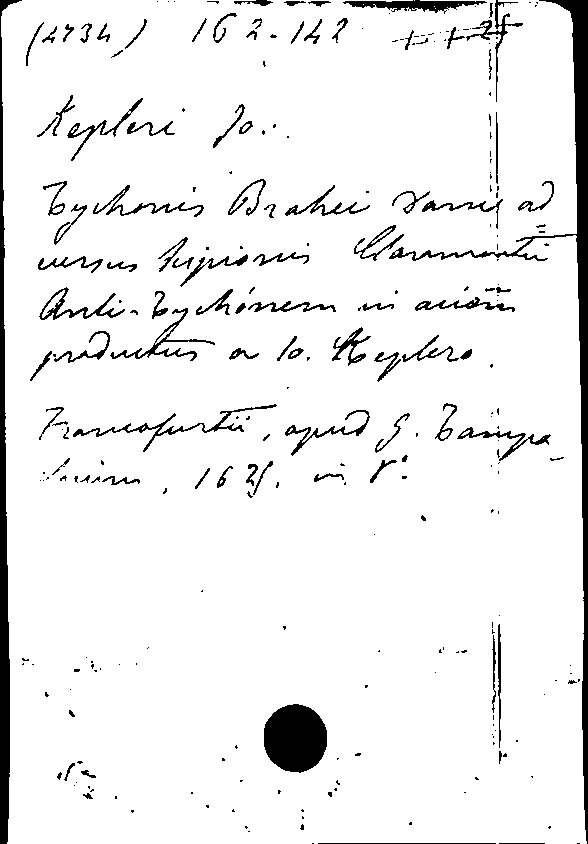 (4734) 162-142 1-1-25
Kepleri Jo..
Tychonis Brahei Dani ad
versus Scipionis Claramontii
Anti-Tychonem in aciem
productus a Io. Keplero.
Francofurti, apud G. Tampa
chium, 1625. in 8°.